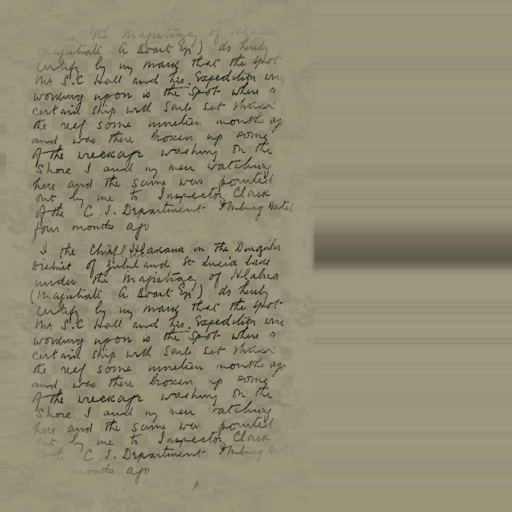 under the Magistracy of
(Magistrate A Boast Esq) do hereby
certify by my mark that the spot
Mr S.C Hall and his Expedition are
working upon is the spot where a
certain ship with sails set struck
the reef some nineteen months ago
and was there broken up some
of the wreckage washing on the
shore I and my men watching
here and the same was pointed
out by me to Inspector Clark
of the C.I. Department
four months ago
I the Chief in the
District of Zululand St Lucia Lake
under the Magistracy of Hlabisa
(Magistrate A Boast Esq) do hereby
certify by my mark that the spot
Mr S.C Hall and his Expedition are
working upon is the spot where a
certain ship with sails set struck
the reef some nineteen months ago
and was there broken up some
of the wreckage washing on the
shore I and my men watching
here and the same was pointed
out by me to Inspector Clark
the C.I. Department
months ago